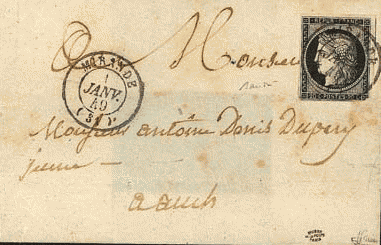 A Monsieur
REPUB. FRANC.
MIRANDE
1
JANV.
49
(31)
20 C POSTES 20 C
Monsieur antoine Denis Dupuy
jeune
a auch